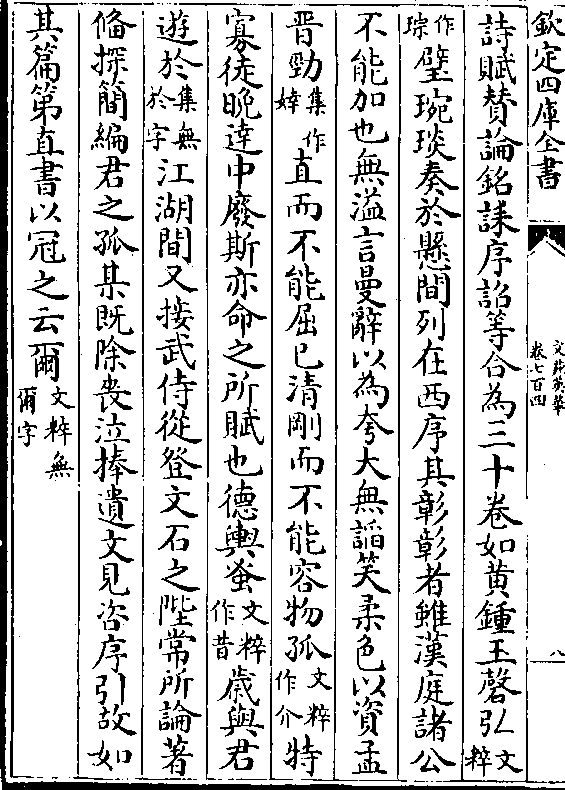 欽定四庫全書
文苑英華
卷七百四
八
詩賦賛論銘誄序詔等合為三十卷如黄鍾玉磬弘文粹
作琮璧琬琰奏於懸間列在西序其彰彰者雖漢庭諸公
不能加也無溢言曼辭以為夸大無謟笑柔色以資孟
晋勁集作婞直而不能屈已清剛而不能容物孤文粹作介特
寡徒晚達中廢斯亦命之所賦也德輿蚤文粹作昔歲與君
遊於集無於字江湖間又接武侍從登文石之陛常所論著
偹探簡編君之孤某既除喪泣捧遺文見咨序引故如
其篇第直書以冠之云爾文粹無爾字